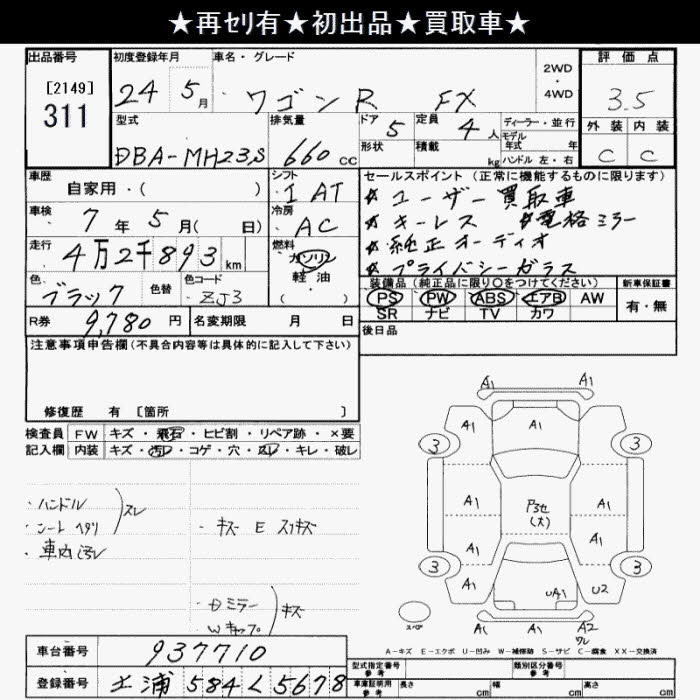 ★再セリ有★初出品★買取車★
出品番号
[2149]
311
初度登録年月
24 5月
車名・グレード
ワゴンR FX
2WD
・
4WD
評価点
3.5
外装 内装
C C
型式
DBA-MH23S
排気量
660cc
ドア
5
形状
定員
4人
積載
kg
ディーラー・並行
モデル
年式 年
ハンドル 左・右
車歴
自家用・( )
シフト
I AT
車検
7年5月( 日)
冷房
AC
走行
4万2千893km
燃料
ガソリン
軽油
( )
色
ブラック
色替
色コード
ZJ3
R券
9,780円
名変期限 月 日
セールスポイント(正常に機能するものに限ります)
☆ユーザー買取車
☆キーレス ☆電格ミラー
☆純正オーディオ
☆プライバシーガラス
装備品(純正品に限り○をつけてください)
PS PW ABS エアB AW
SR ナビ TV カワ
新車保証書
有・無
後日品
注意事項申告欄(不具合内容等は具体的に記入して下さい)
修復歴 有 [箇所 ]
検査員 FW キズ・飛石・ヒビ割・リペア跡・×要
記入欄 内装 キズ・汚レ・コゲ・穴・スレ・キレ・破レ
・ハンドル
・シートヘタリ
スレ
・車内汚レ
・キズ E スリキズ
・Dミラー
Wキャップ
キズ
A1 A1
A1
3 3
A1 A1
A1 A1
P3セ
(大)
A1 A1
3 3
A1 U2
UA1
スペア
A1 A1 A2
ワレ
A-キズ E-エクボ U-凹み W-補修跡 S-サビ C-腐食 XX-交換済
車台番号
937710
登録番号
土浦 584 L 5678
型式指定番号
参考
類別区分番号
参考
車庫証明用
参考
長さ cm 幅 cm 高さ cm